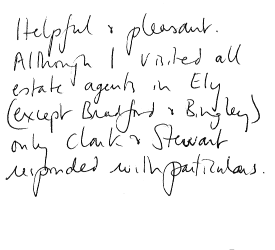 Helpful & pleasant.
Although I visited all
estate agents in Ely
(except Bradford & Bingley)
only Clark & Stewart
responded with particulars.